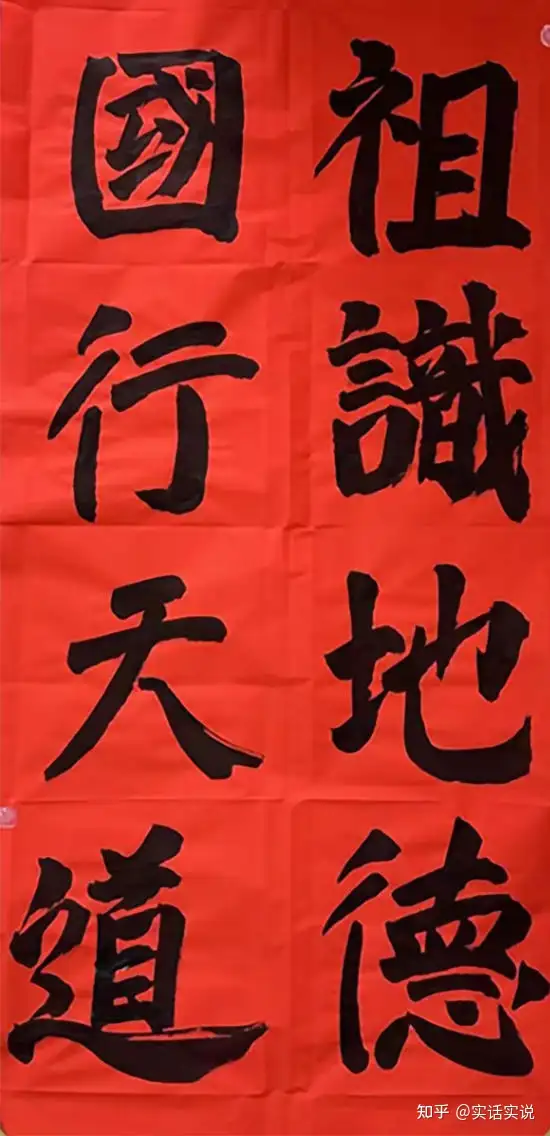 祖識地德
國行天道
知乎 @实话实说